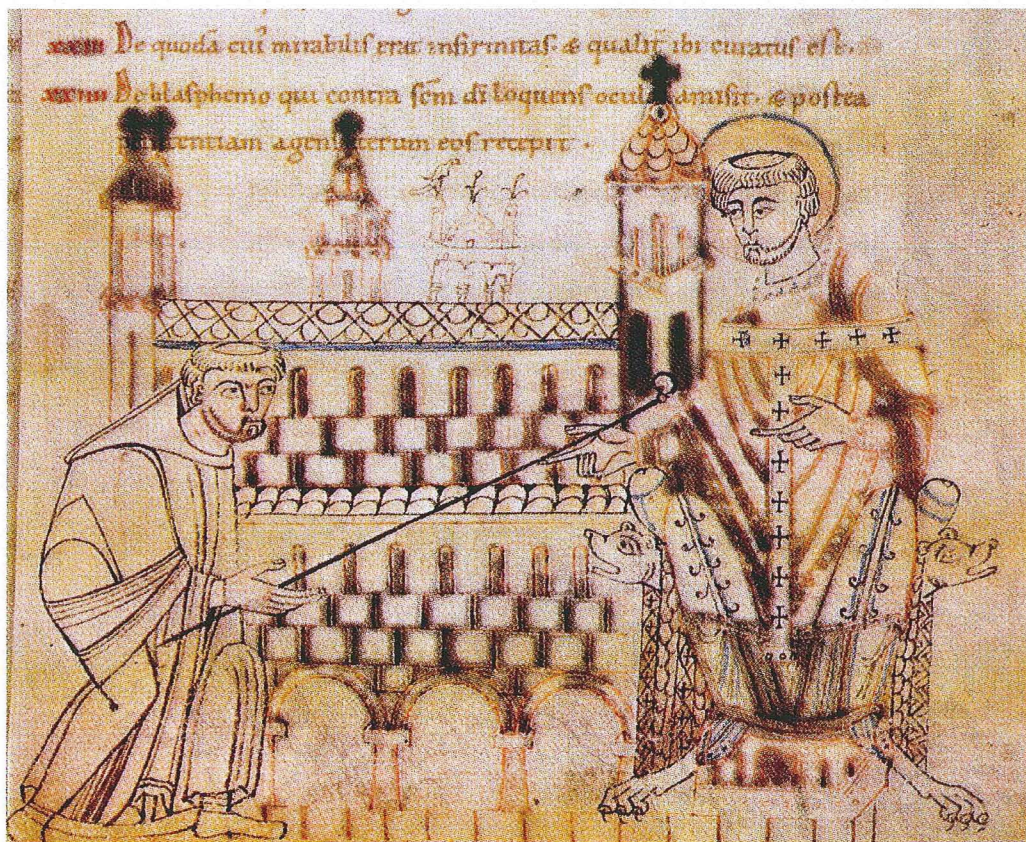 xxiii De quodā cui' mirabilis erat infirmitas. & qualit̄ ibi curatus est.
xxiiii De blasphemo qui contra sc̄m dī loquens ocul amisit. & postea
tentiam agens iterum eos recepit.